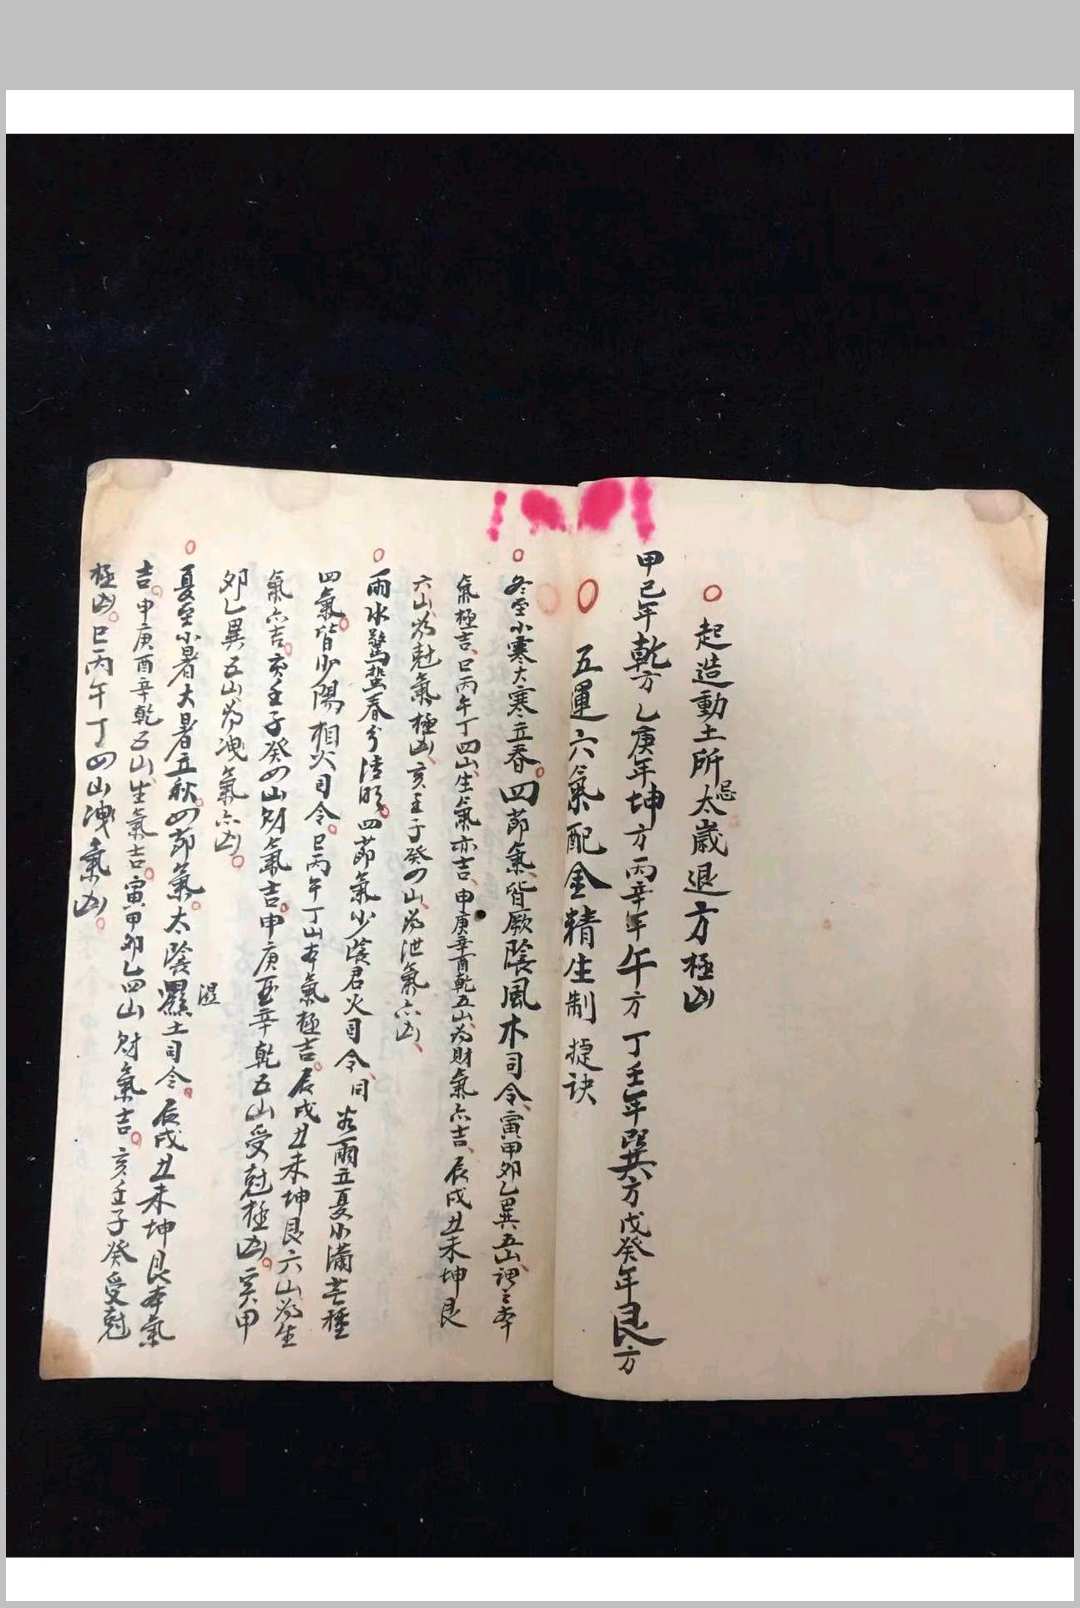 起造動土所忌太歲退方極凶
甲己年乾方乙庚年坤方丙辛年午方丁壬年巽方戊癸年艮方
五運六氣配金精生制捷訣
冬至小寒大寒立春四節氣皆厥陰風木司令寅甲卯乙巽五山謂之本
氣極吉巳丙午丁四山生氣亦吉申庚辛酉乾五山為財氣亦吉辰戌丑未坤艮
六山為尅氣極凶亥壬子癸四山為泄氣亦凶
雨水驚蟄春分清明四節氣少陰君火司令同谷雨立夏小滿芒種
四氣皆少陽相火司令巳丙午丁山本氣極吉辰戌丑未坤艮六山為生
氣亦吉亥壬子癸四山財氣吉申庚酉辛乾五山受尅極凶寅甲
卯乙巽五山為洩氣亦凶
夏至小暑大暑立秋四節氣太陰濕土司令辰戌丑未坤艮本氣
吉申庚酉辛乾五山生氣吉寅甲卯乙四山財氣吉亥壬子癸受尅
極凶巳丙午丁四山洩氣凶